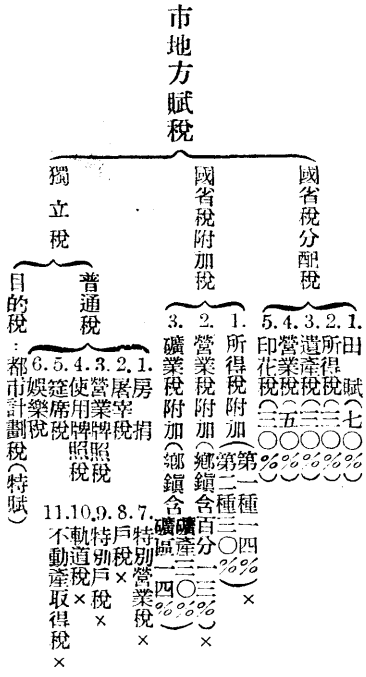 市地方賦稅
國省稅分配稅
1.田賦（七〇%）
2.所得稅（三〇%）
3.遺產稅（三〇%）
4.營業稅（五〇%）
5.印花稅（三〇%）
國省稅附加稅
1.所得稅附加（第一種一四%）×
（第二種三〇%）
2.營業稅附加（鄉鎮含百分一三%）×
3.礦業稅附加（鄉鎮含礦產三〇%）
礦區一四%
獨立稅
普通稅
1.房捐
2.屠宰稅
3.營業牌照稅
4.使用牌照稅
5.筵席稅
6.娛樂稅
7.特別營業稅×
8.戶稅×
9.特別戶稅×
10.軌道稅×
11.不動產取得稅×
目的稅：都市計劃稅（特賦）